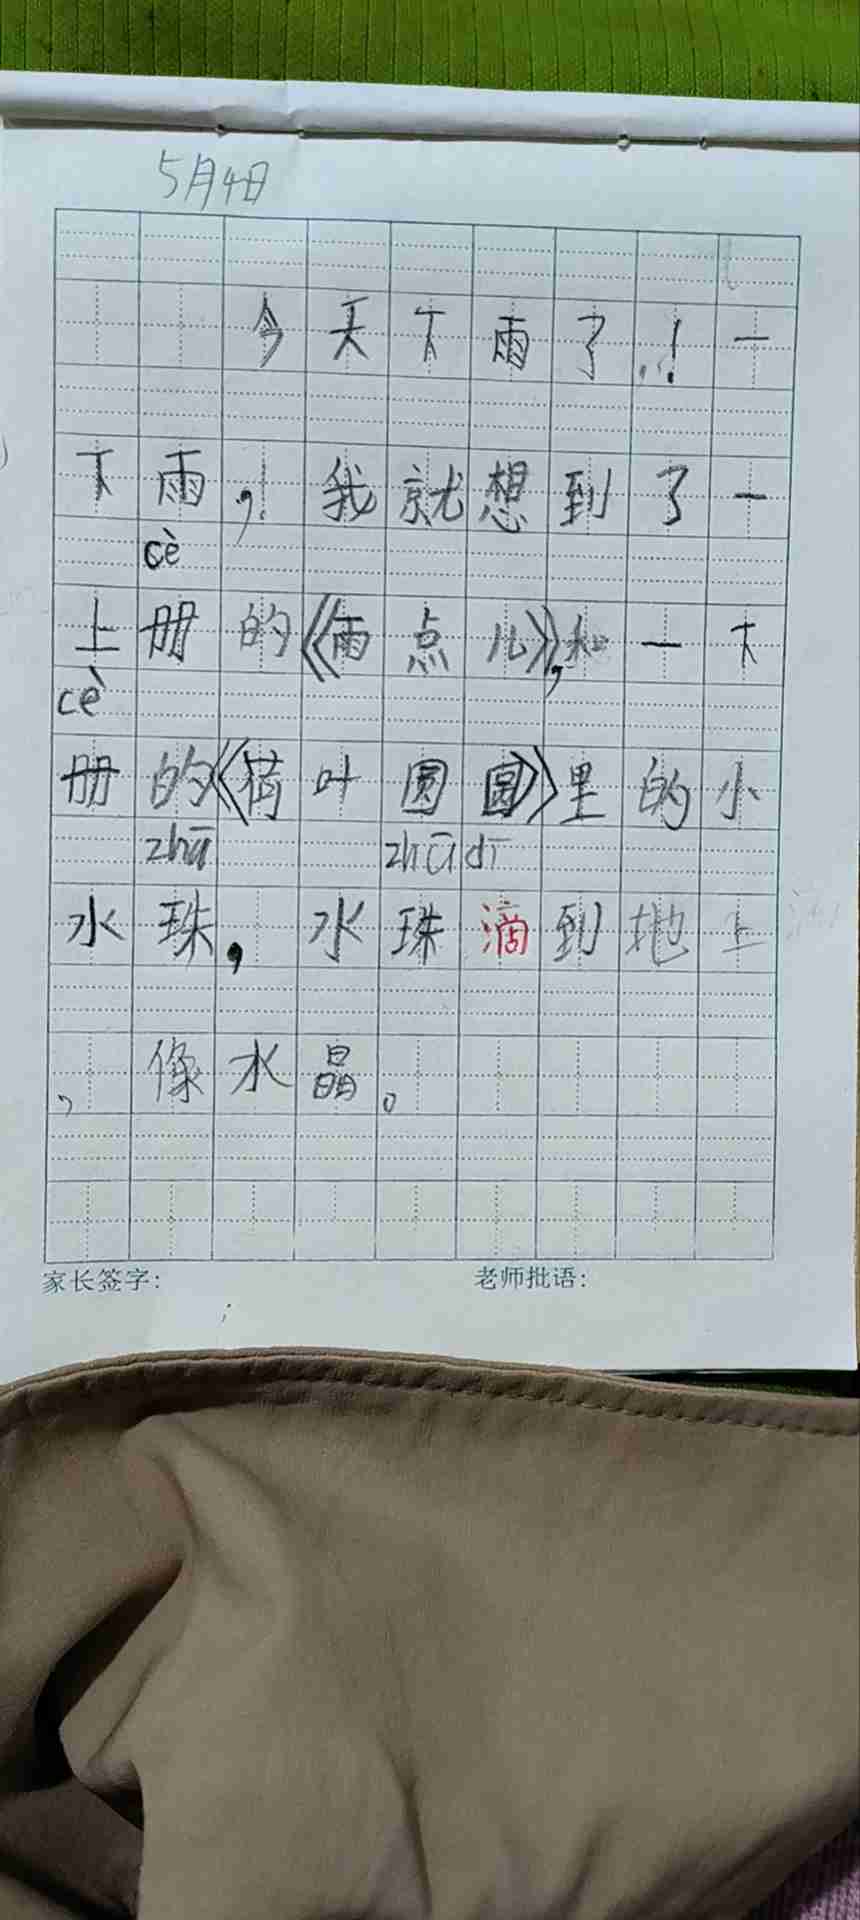 5月4日
今天下雨了!一
下雨,我就想到了一
cè
上册的《雨点儿》,和一下
cè
册的《荷叶圆圆》里的小
zhū zhū dī
水珠,水珠滴到地上
,像水晶。
家长签字: 老师批语: